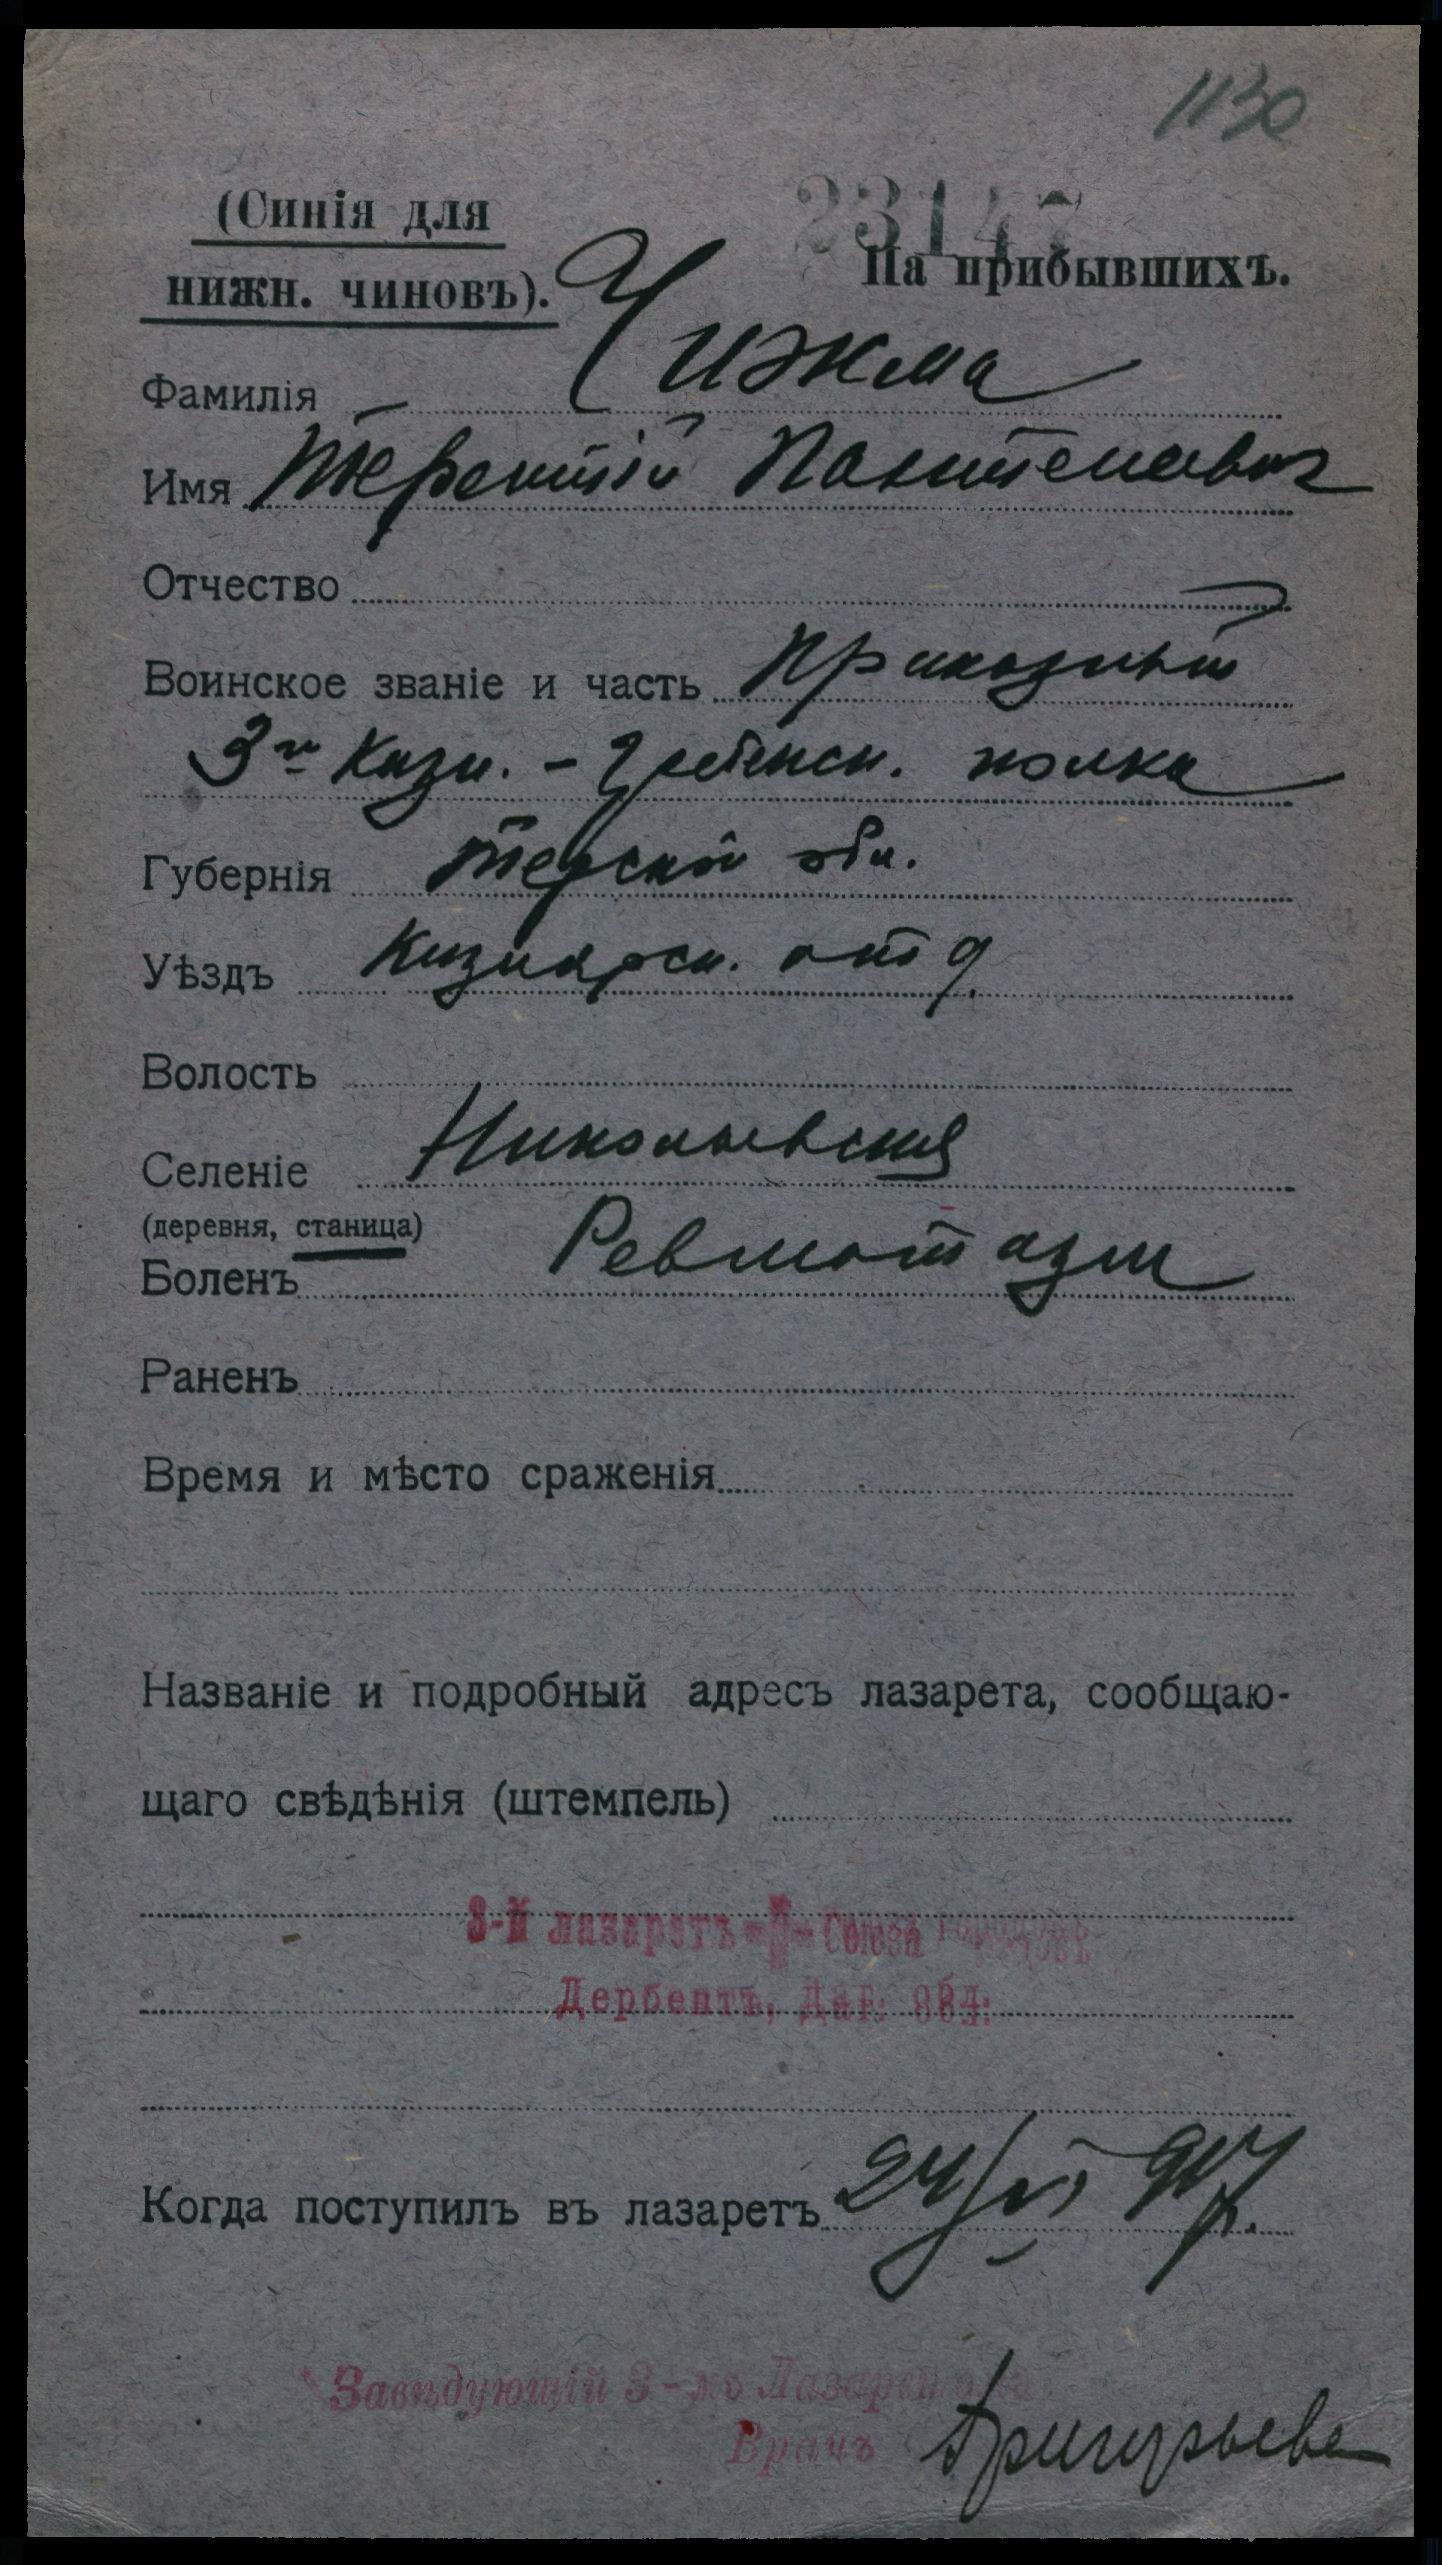 1130
23147
(Синія для
нижн. чиновъ).
На прибывшихъ.
Фамилія Чижма
Имя Терентій Пантелеевич
Отчество
Воинское званіе и часть Приказный
3го Кизл. - Гребенск. полка
Губернія Терской обл.
Уѣздъ Кизлярск. отд.
Волость
Селеніе Николаевская
(деревня, станица)
Боленъ Ревматизм
Раненъ
Время и мѣсто сраженія
Названіе и подробный адресъ лазарета, сообщаю-
щаго свѣдѣнія (штемпель)
3-й лазаретъ Союза городовъ
Дербентъ, Даг. обл.
Когда поступилъ въ лазаретъ 24/VI 917 г.
Завѣдующій 3-мъ Лазаретомъ
Врачъ Григорьева